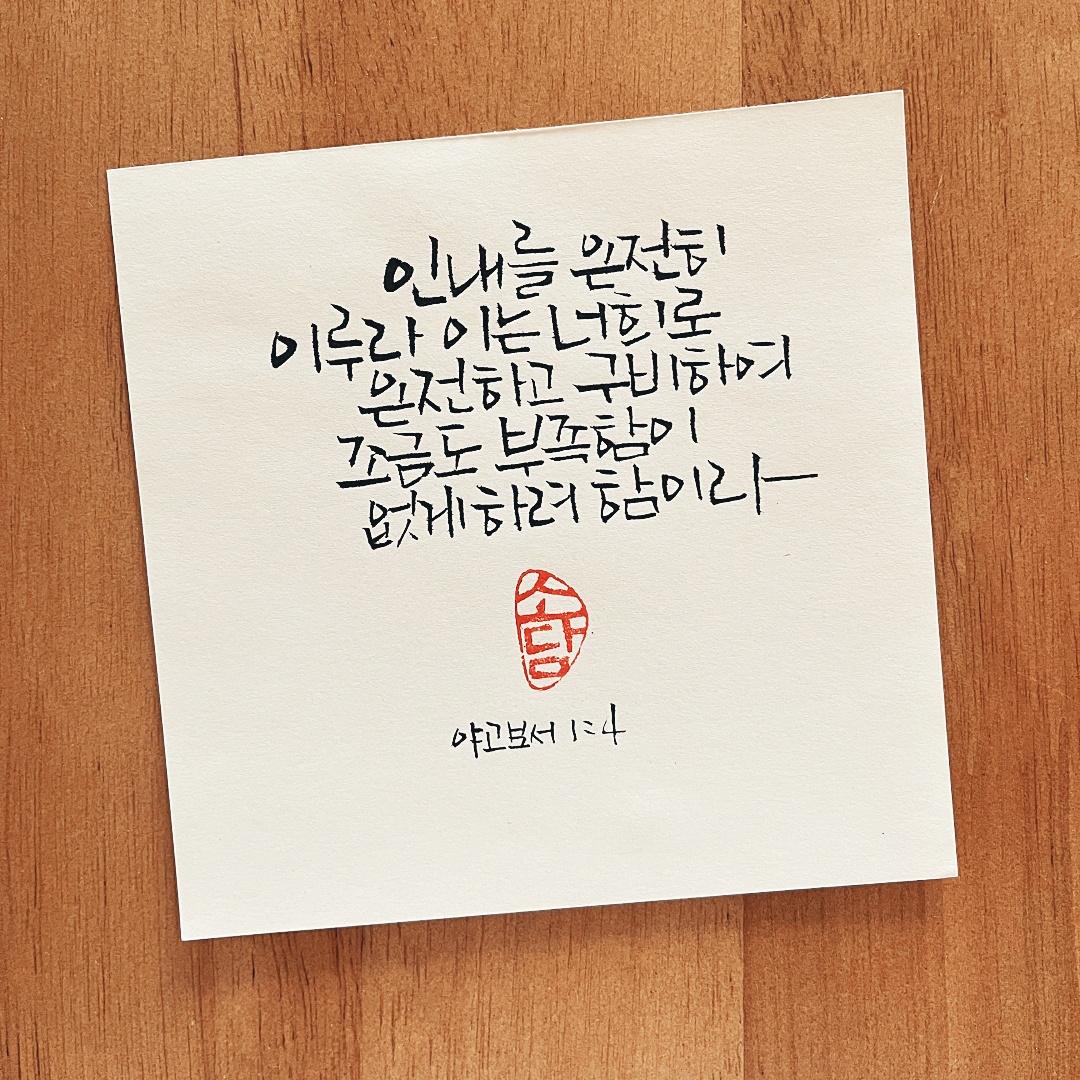 인내를 온전히
이루라 이는 너희로
온전하고 구비하여
조금도 부족함이
없게 하려 함이라
소담
야고보서 1:4